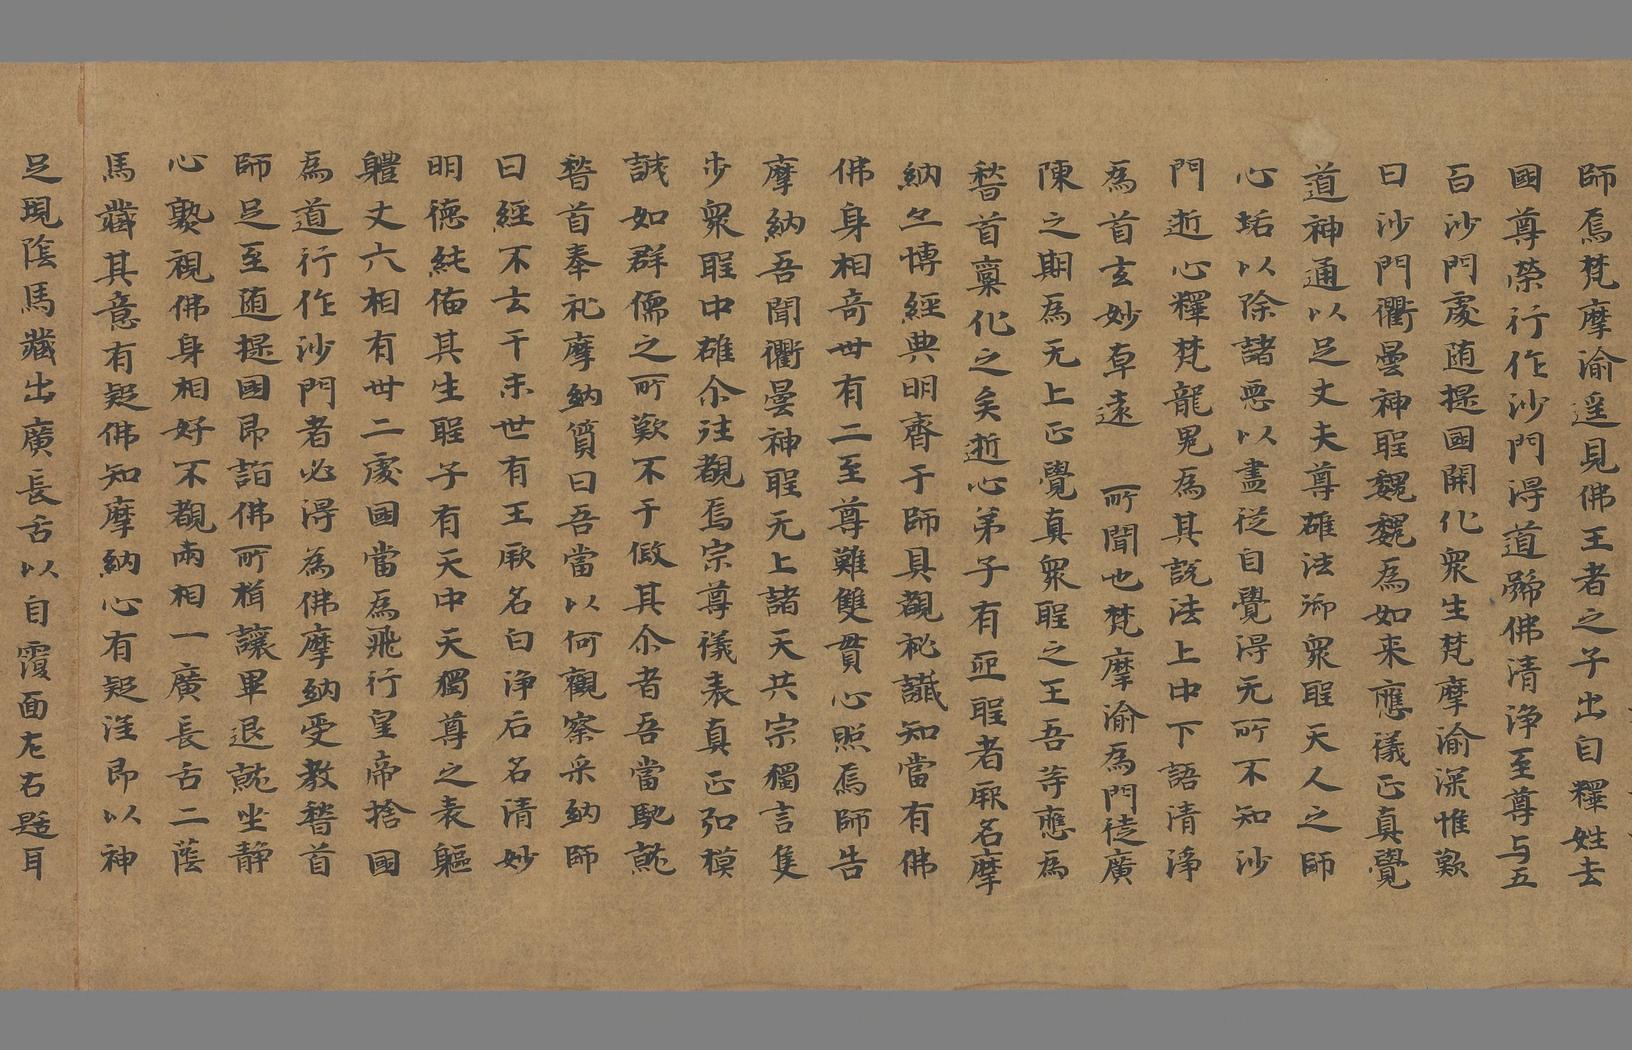 師焉梵摩渝遥見佛王者之子出自釋姓去
國尊榮行作沙門得道號佛清淨至尊与五
百沙門處随提國開化衆生梵摩渝深惟歎
曰沙門衢曇神聖巍巍為如来應儀正真覺
道神通以足丈夫尊雄法御衆聖天人之師
心垢以除諸惡以盡從自覺得无所不知沙
門逝心釋梵龍鬼為其說法上中下語清淨
為首玄妙卓遠 所聞也梵摩渝為門徒廣
陳之期為无上正覺真衆聖之王吾等應為
稽首禀化之矣逝心弟子有亞聖者厥名摩
納亦博經典明齊于師具覩秘讖知當有佛
佛身相奇丗有二至尊難雙貫心照焉師告
摩納吾聞衢曇神聖无上諸天共宗獨言隻
步衆聖中雄尒往覩焉宗尊儀表真正弘模
誠如群儒之所歎不乎倣其尒者吾當馳就
稽首奉礼摩納質曰吾當以何觀察采納師
曰經不云乎末世有王厥名白淨后名清妙
明德純備其生聖子有天中天獨尊之表軀
體丈六相有丗二處國當為飛行皇帝捨國
為道行作沙門者必得為佛摩納受教稽首
師足至随提國即詣佛所揖讓畢退就坐静
心熟視佛身相好不覩兩相一廣長舌二蔭
馬藏其意有疑佛知摩納心有疑望即以神
足現陰馬藏出廣長舌以自覆面左右舐耳